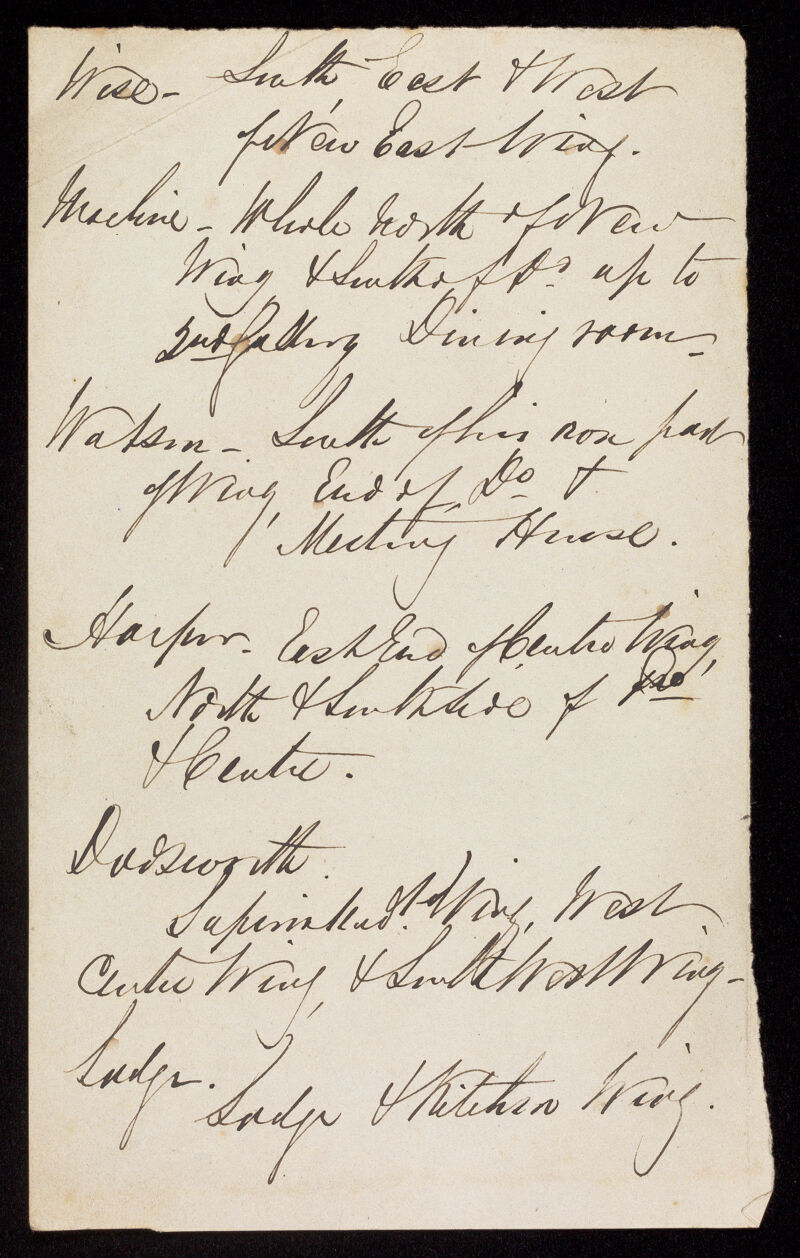 Wise - South, East & West
of New East Wing.
Machine - Whole North of New
Wing & South of Do up to
2nd Gallery Dining room -
Watson - South of
of Wing, End of Do &
Meeting House.
Harper - East End of Centre Wing,
North & South side of Do
& Centre.
Dodsworth.
Superintendts Wing, West
Centre Wing, & South West Wing -
Lodge.
Lodge & Kitchen Wing.